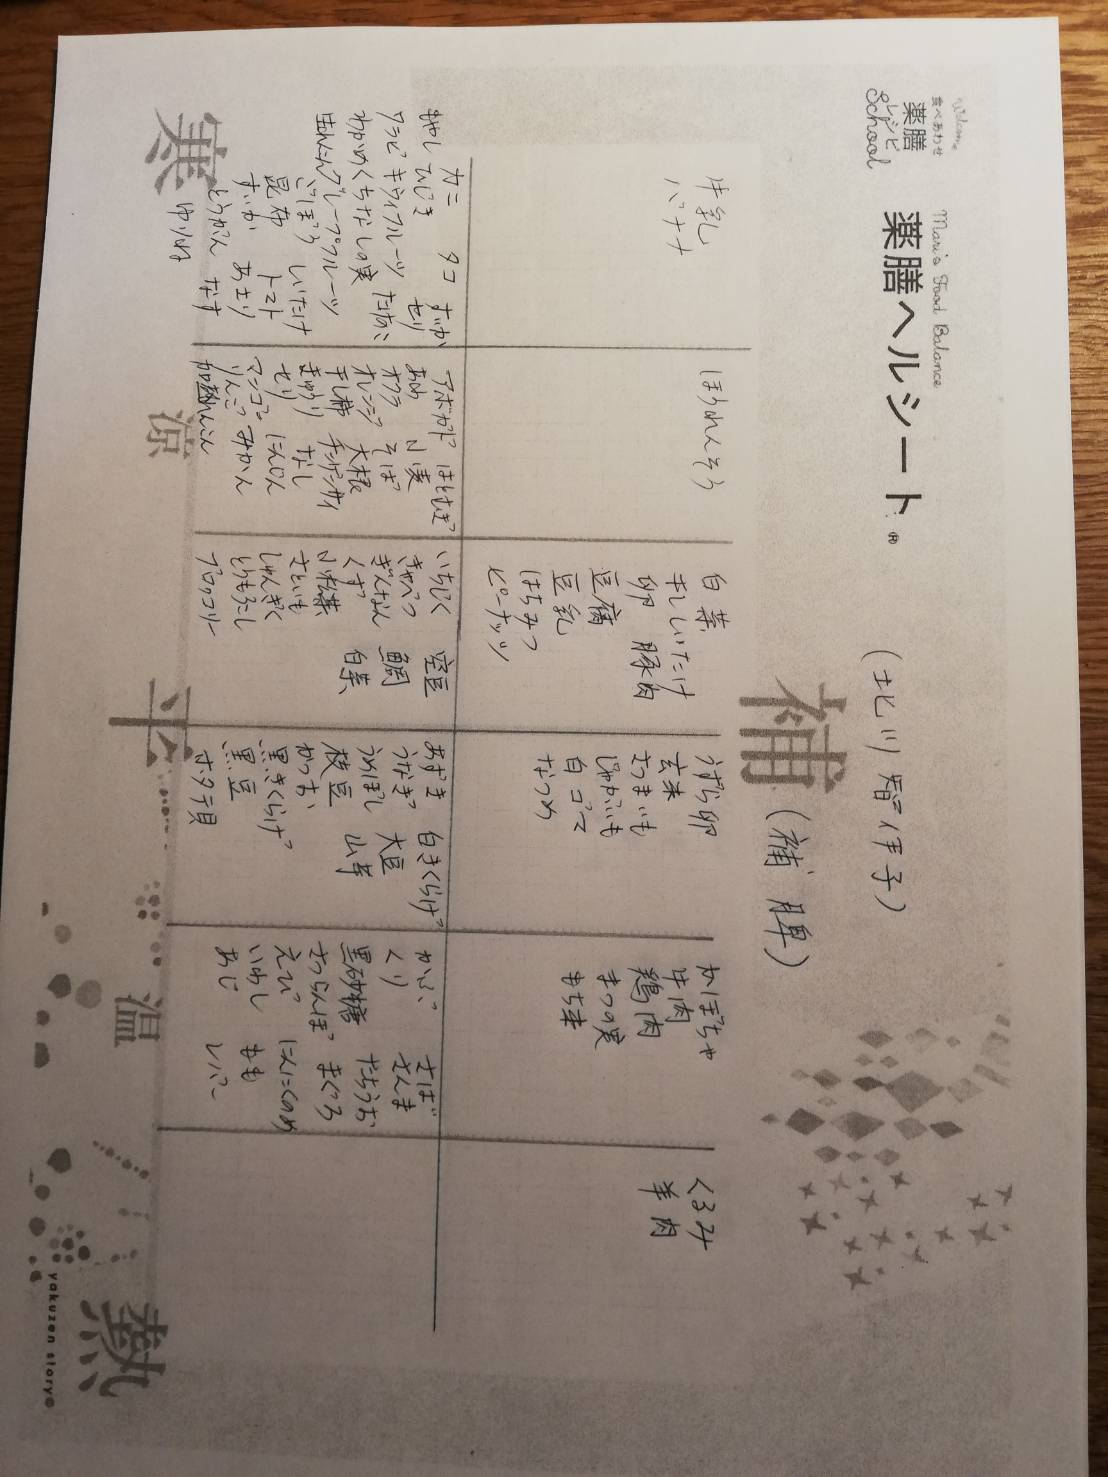 Welcome
食べあわせ
薬膳
レシピ
School
Mari's Food Balance
薬膳ヘルシート®
補
(補脾)
牛乳
バナナ
ほうれんそう
白菜
干ししいたけ
卵 豚肉
豆腐
豆乳
はちみつ
ピーナッツ
うずら卵
玄米
さつまいも
じゃがいも
白ゴマ
なつめ
かぼちゃ
牛肉
鶏肉
まつの実
もち米
くるみ
羊肉
カニ タコ すいか
もやし ひじき せり
ワラビ キウイフルーツ たけのこ
わかめ くちなしの実
グレープフルーツ
ごぼう しいたけ
昆布 トマト
すいか あさり
とうがん なす
ゆりね
アボガド はとむぎ
あわ 小麦
オクラ そば
オレンジ 大根
干し柿 チンゲンサイ
きゅうり なし
セリ にんじん
マンゴー みかん
りんご
加熱れんこん
いちじく 空豆
きゃべつ 鯛
ぎんなん 白菜
くず
小松菜
さといも
しゅんぎく
とうもろこし
ブロッコリー
あずき 白きくらげ
うなぎ 大豆
うめぼし 山芋
枝豆
かつお
黒きくらげ
黒豆
ホタテ貝
かぶ さば
くり さんま
黒砂糖 たちうお
さくらんぼ まぐろ
えび にんにくのめ
いわし もも
あじ レバー
寒
涼
平
温
熱
yakuzen story©